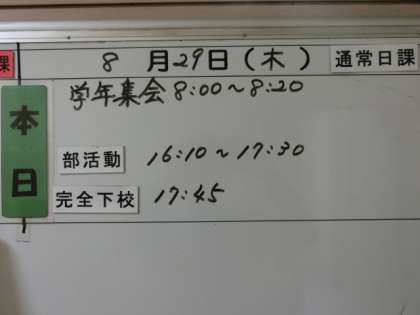 課 8月29日(木) 通常日課
学年集会 8:00~8:20
本日
部活動 16:10~17:30
完全下校 17:45